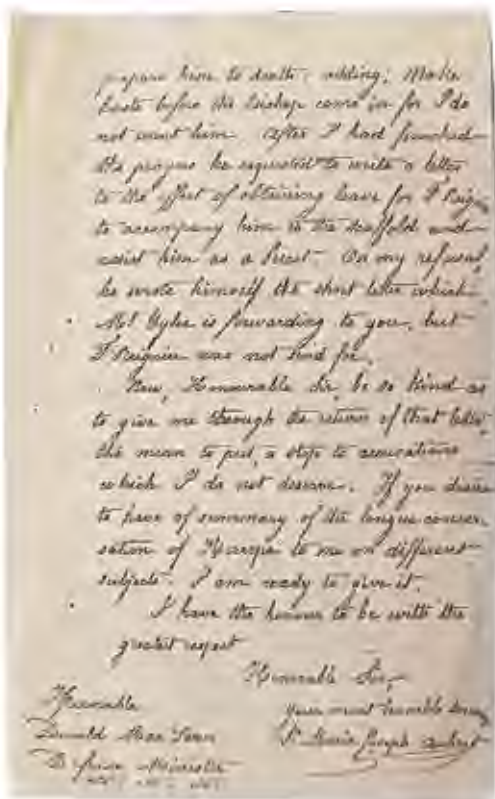 prepare him to death: adding; Make
haste before the bishop come in for I do
not want him. After I had finished
the prayers he requested to write a letter
to the effect of obtaining leave for F Reignier
to accompany him to the scaffold and
assist him as a Priest. On my refusal,
he wrote himself the short letter which
Mr Ogles is forwarding to you, but
F Reignier was not send for.
Now, Honourable Sir, be so kind as
to give me through the return of that letter,
the mean to put a stop to accusations
which I do not deserve. If you desire
to have of summary of the longue conver
sation of to me on different
subjects. I am ready to give it.
I have the honour to be with the
greatest respect
Honorable Sir,
your most humble
Fr Marie Joseph Aubert
Honorable
Donald Mac Lean
Defense Minister